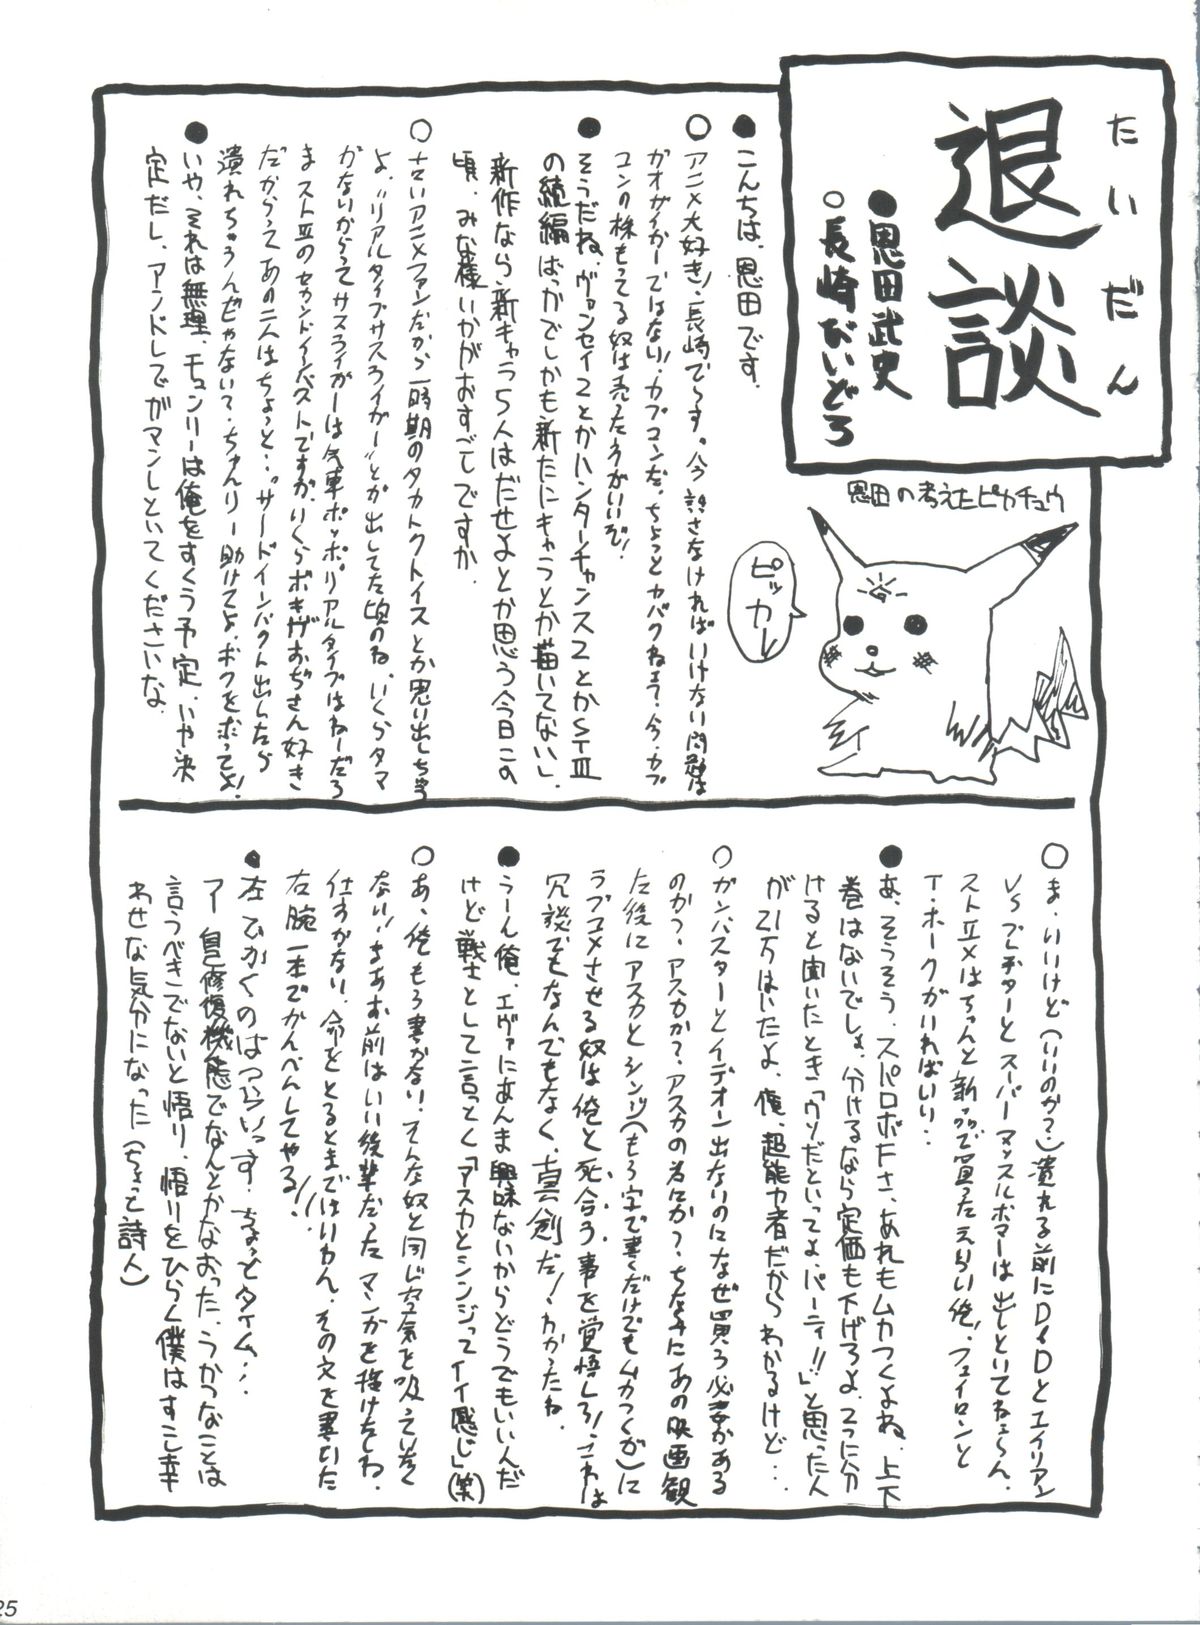 たいだん
退談
●恩田武史
○長崎びいどろ
恩田の考えたピカチュウ
ピッカー
●こんちは、恩田です。
○アニメ大好き!長崎でらす。今話さなければいけない問題は
ガオガイガーではない!カプコンだ。ちょっとカバクねェ?今、カプ
コンの株もってる奴は売った方がいいぞ!
●そうだね、ヴァンセイ2とかハンターチャンス2とかSTⅢ
の続編ばっかでしかも新たにキャラとか描いてない。
新作なら新キャラ5人はだせよとか思う今日この
頃、みな様いかがおすべしですか。
○古いアニメファンだから一時期のタカトクトイスとか思い出しち当
よ。"リアルタイプサスライガー"とか出してた頃のね、いくらタマ
がないからってサスライガーは気車ポッポ。リアルタイプはねーだろ
まストⅢのセカンドインパクトですが、いくらボキがおぢさん好き
だからってあの二人はちょっと…"サードインパクト出したら
潰れちゃうんじゃない?ちゃんりー助けてよ、ボクをボってよ!
●いや、それは無理、モュンリーは俺をすくう予定、いや決
定だし、アンドレでガマンしといてくださいな。
○ま、いいけど(いいのか?)潰れる前にD&Dとエイリアン
VSプレデターとスーパーマッスルボマーは出しといてねェ〜ん。
ストⅡXはちゃんと新品で買ったえらい俺!フェイロンと
T・ホークがいればいい‥
●あ、そうそう、スパロボFさ、あれもムカつくよね。上下
巻はないでしょ、分けるなら定価も下げろよ、2つに分
けると聞いたとき「ウソだといってよ、バーニィ!!」と思った人
が21万はいたよ、俺、超能力者だからわかるけど…
○ガンバスターとイデオン出ないのになぜ買う必要がある
のか?、アスカか?、アスカの為にか?、ちなみにあの映画観
た後にアスカとシンジ(もう字で書くだけでもムカつくが)に
ラブコメさせる奴は俺と死合う事を覚悟しろ!これは
冗談でもなんでもなく、真剣だ!わかったね。
●うーん俺、エヴァにあんま興味ないからどうでもいいんだ
けど戦士として言っとく「アスカとシンジってイイ感じ」(笑)
○あ、俺もう書かない。そんな奴と同じ空気を吸っていたく
ない!まあお前はいい後輩だったマンガを抜けたしね。
仕方がない、命をとるとまではいわん、その文を書いた
右腕一本でかんべんしてやる!!
●左でかくのはつらいっす。ちょっとタイム…
アー自己修復機能でなんとかなおった、うかつなことは
言うべきでないと悟り、悟りをひらく僕はすこし幸
わせな気分になった(ちょっと詩人)
25